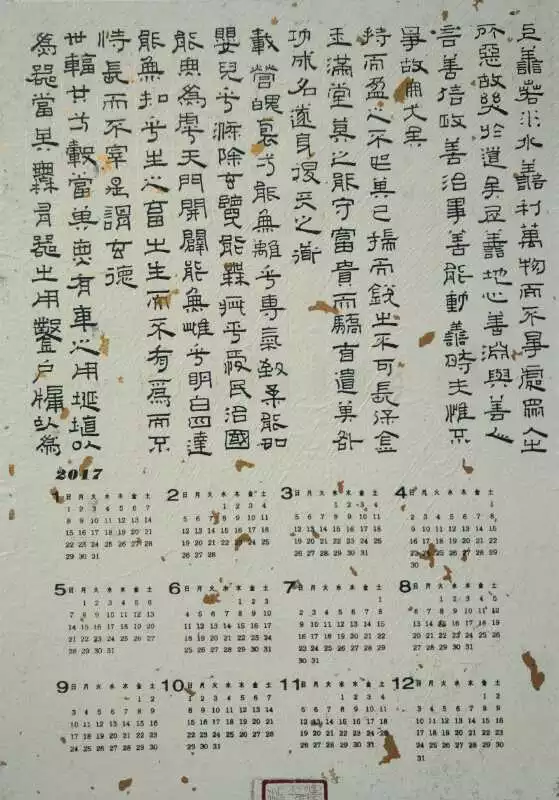 上善若水水善利萬物而不爭處眾人之
所惡故幾於道矣居善地心善淵與善人
言善信政善治事善能動善時夫惟不
爭故無尤矣
持而盈之不如其已揣而銳之不可長保金
玉滿堂莫之能守富貴而驕自遺其咎
功成名遂身退天之道
載營魄袌一能無離乎專氣致柔能如
嬰兒乎滌除玄覽能無疵乎愛民治國
能無為乎天門開闔能無雌乎明白四達
能無知乎生之畜之生而不有為而不
恃長而不宰是謂玄德
卅輻共一轂當其無有車之用埏埴以
為器當其無有器之用鑿戶牖以為
2017
1 日 月 火 水 木 金 土
1 2 3 4 5 6 7
8 9 10 11 12 13 14
15 16 17 18 19 20 21
22 23 24 25 26 27 28
29 30 31
2 日 月 火 水 木 金 土
1 2 3 4
5 6 7 8 9 10 11
12 13 14 15 16 17 18
19 20 21 22 23 24 25
26 27 28
3 日 月 火 水 木 金 土
1 2 3 4
5 6 7 8 9 10 11
12 13 14 15 16 17 18
19 20 21 22 23 24 25
26 27 28 29 30 31
4 日 月 火 水 木 金 土
1
2 3 4 5 6 7 8
9 10 11 12 13 14 15
16 17 18 19 20 21 22
23 24 25 26 27 28 29
30
5 日 月 火 水 木 金 土
1 2 3 4 5 6
7 8 9 10 11 12 13
14 15 16 17 18 19 20
21 22 23 24 25 26 27
28 29 30 31
6 日 月 火 水 木 金 土
1 2 3
4 5 6 7 8 9 10
11 12 13 14 15 16 17
18 19 20 21 22 23 24
25 26 27 28 29 30
7 日 月 火 水 木 金 土
1
2 3 4 5 6 7 8
9 10 11 12 13 14 15
16 17 18 19 20 21 22
23 24 25 26 27 28 29
30 31
8 日 月 火 水 木 金 土
1 2 3 4 5
6 7 8 9 10 11 12
13 14 15 16 17 18 19
20 21 22 23 24 25 26
27 28 29 30 31
9 日 月 火 水 木 金 土
1 2
3 4 5 6 7 8 9
10 11 12 13 14 15 16
17 18 19 20 21 22 23
24 25 26 27 28 29 30
10 日 月 火 水 木 金 土
1 2 3 4 5 6 7
8 9 10 11 12 13 14
15 16 17 18 19 20 21
22 23 24 25 26 27 28
29 30 31
11 日 月 火 水 木 金 土
1 2 3 4
5 6 7 8 9 10 11
12 13 14 15 16 17 18
19 20 21 22 23 24 25
26 27 28 29 30
12 日 月 火 水 木 金 土
1 2
3 4 5 6 7 8 9
10 11 12 13 14 15 16
17 18 19 20 21 22 23
24 25 26 27 28 29 30
31